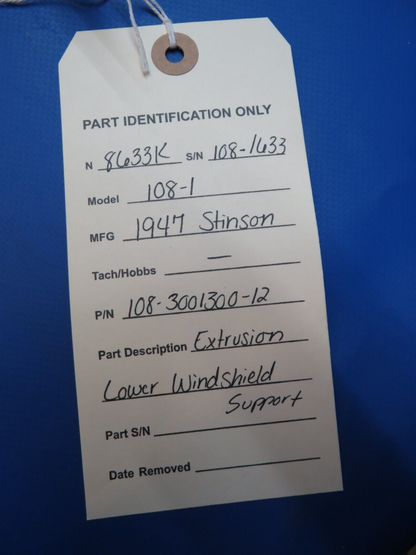 PART IDENTIFICATION ONLY
N 8633K S/N 108-1633
Model 108-1
MFG 1947 Stinson
Tach/Hobbs —
P/N 108-3001300-12
Part Description Extrusion
Lower Windshield
Support
Part S/N
Date Removed